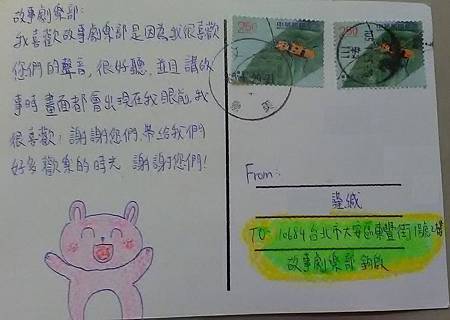 故事劇樂部:
我喜歡故事劇樂部是因為我很喜歡
您們的聲音,很好聽,並且講故
事時畫面都會出現在我眼前,我
很喜歡!謝謝您們,帶給我們
好多歡樂的時光 謝謝您們!
250
250
From:
謹緘
TO: 10684台北市大安區東豐街
故事劇樂部 鈞啟